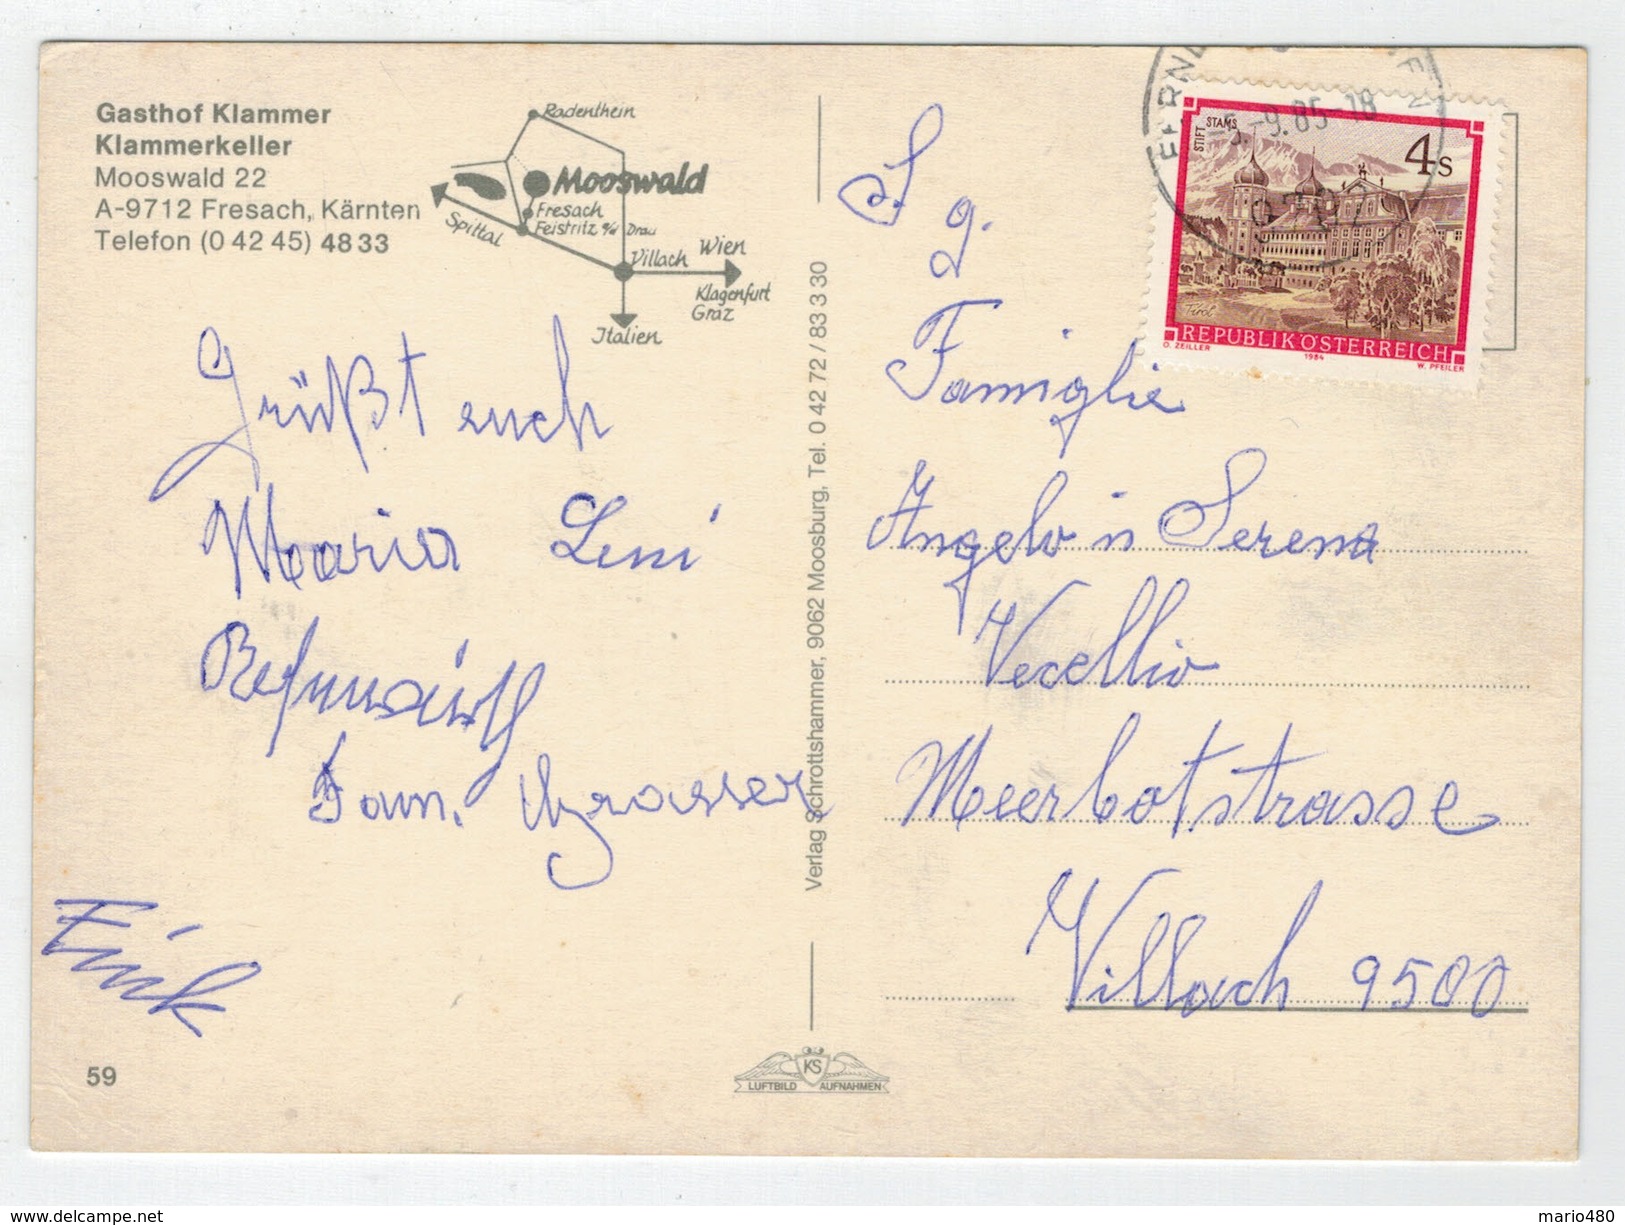 Gasthof Klammer
Klammerkeller
Mooswald 22
A-9712 Fresach, Kärnten
Telefon (0 42 45) 48 33
Radenthein
Mooswald
Fresach
Feistritz a/d Drau
Spittal
Villach
Wien
Klagenfurt
Graz
Italien
Grüßt euch
Maria Leni
Fam.
Fink
59
Verlag Schrottshammer, 9062 Moosburg, Tel. 0 42 72 / 83 3 30
KS
LUFTBILD AUFNAHMEN
-9.85-18
STIFT STAMS
4 S
Tirol
REPUBLIK ÖSTERREICH
O. ZEILLER 1984 W. PFEILER
S. g.
Famiglie
Angelo n Serena
Vecellio
Meerbotstrasse
Villach 9500
mario480
delcampe.net